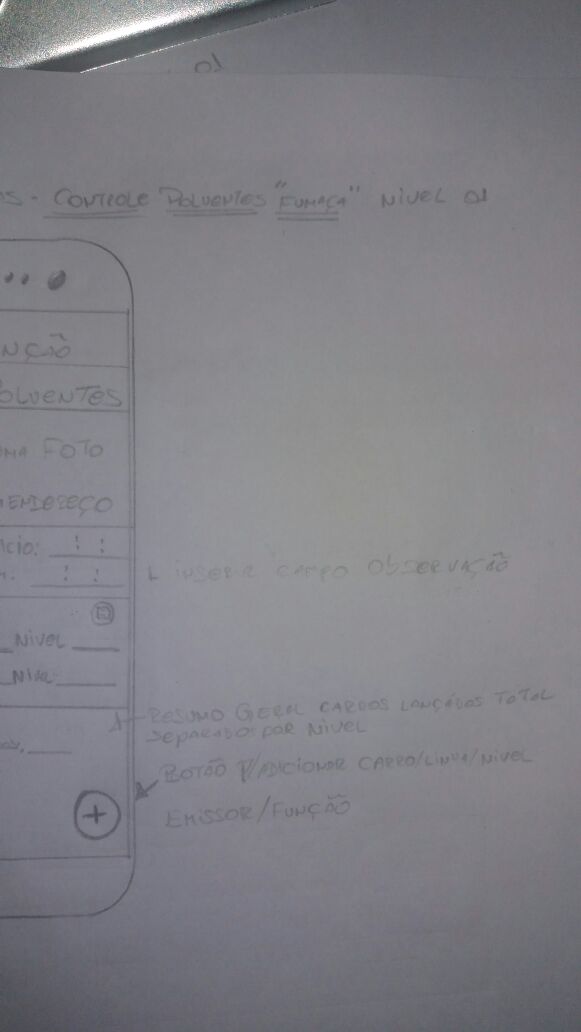 01
OS - CONTROLE POLUENTES "FUMAÇA" NIVEL 01
NÇÃO
OLUENTES
UMA FOTO
ENDEREÇO
ício: __ : __ : __
: __ : __ : __
L INSERIR CAMPO OBSERVAÇÃO
_ NIVEL ____
_ NIVEL: ____
RESUMO GERAL CARROS LANÇADOS TOTAL
SEPARADOS POR NIVEL
BOTÃO P/ADICIONAR CARRO/LINHA/NIVEL
+
EMISSOR/FUNÇÃO